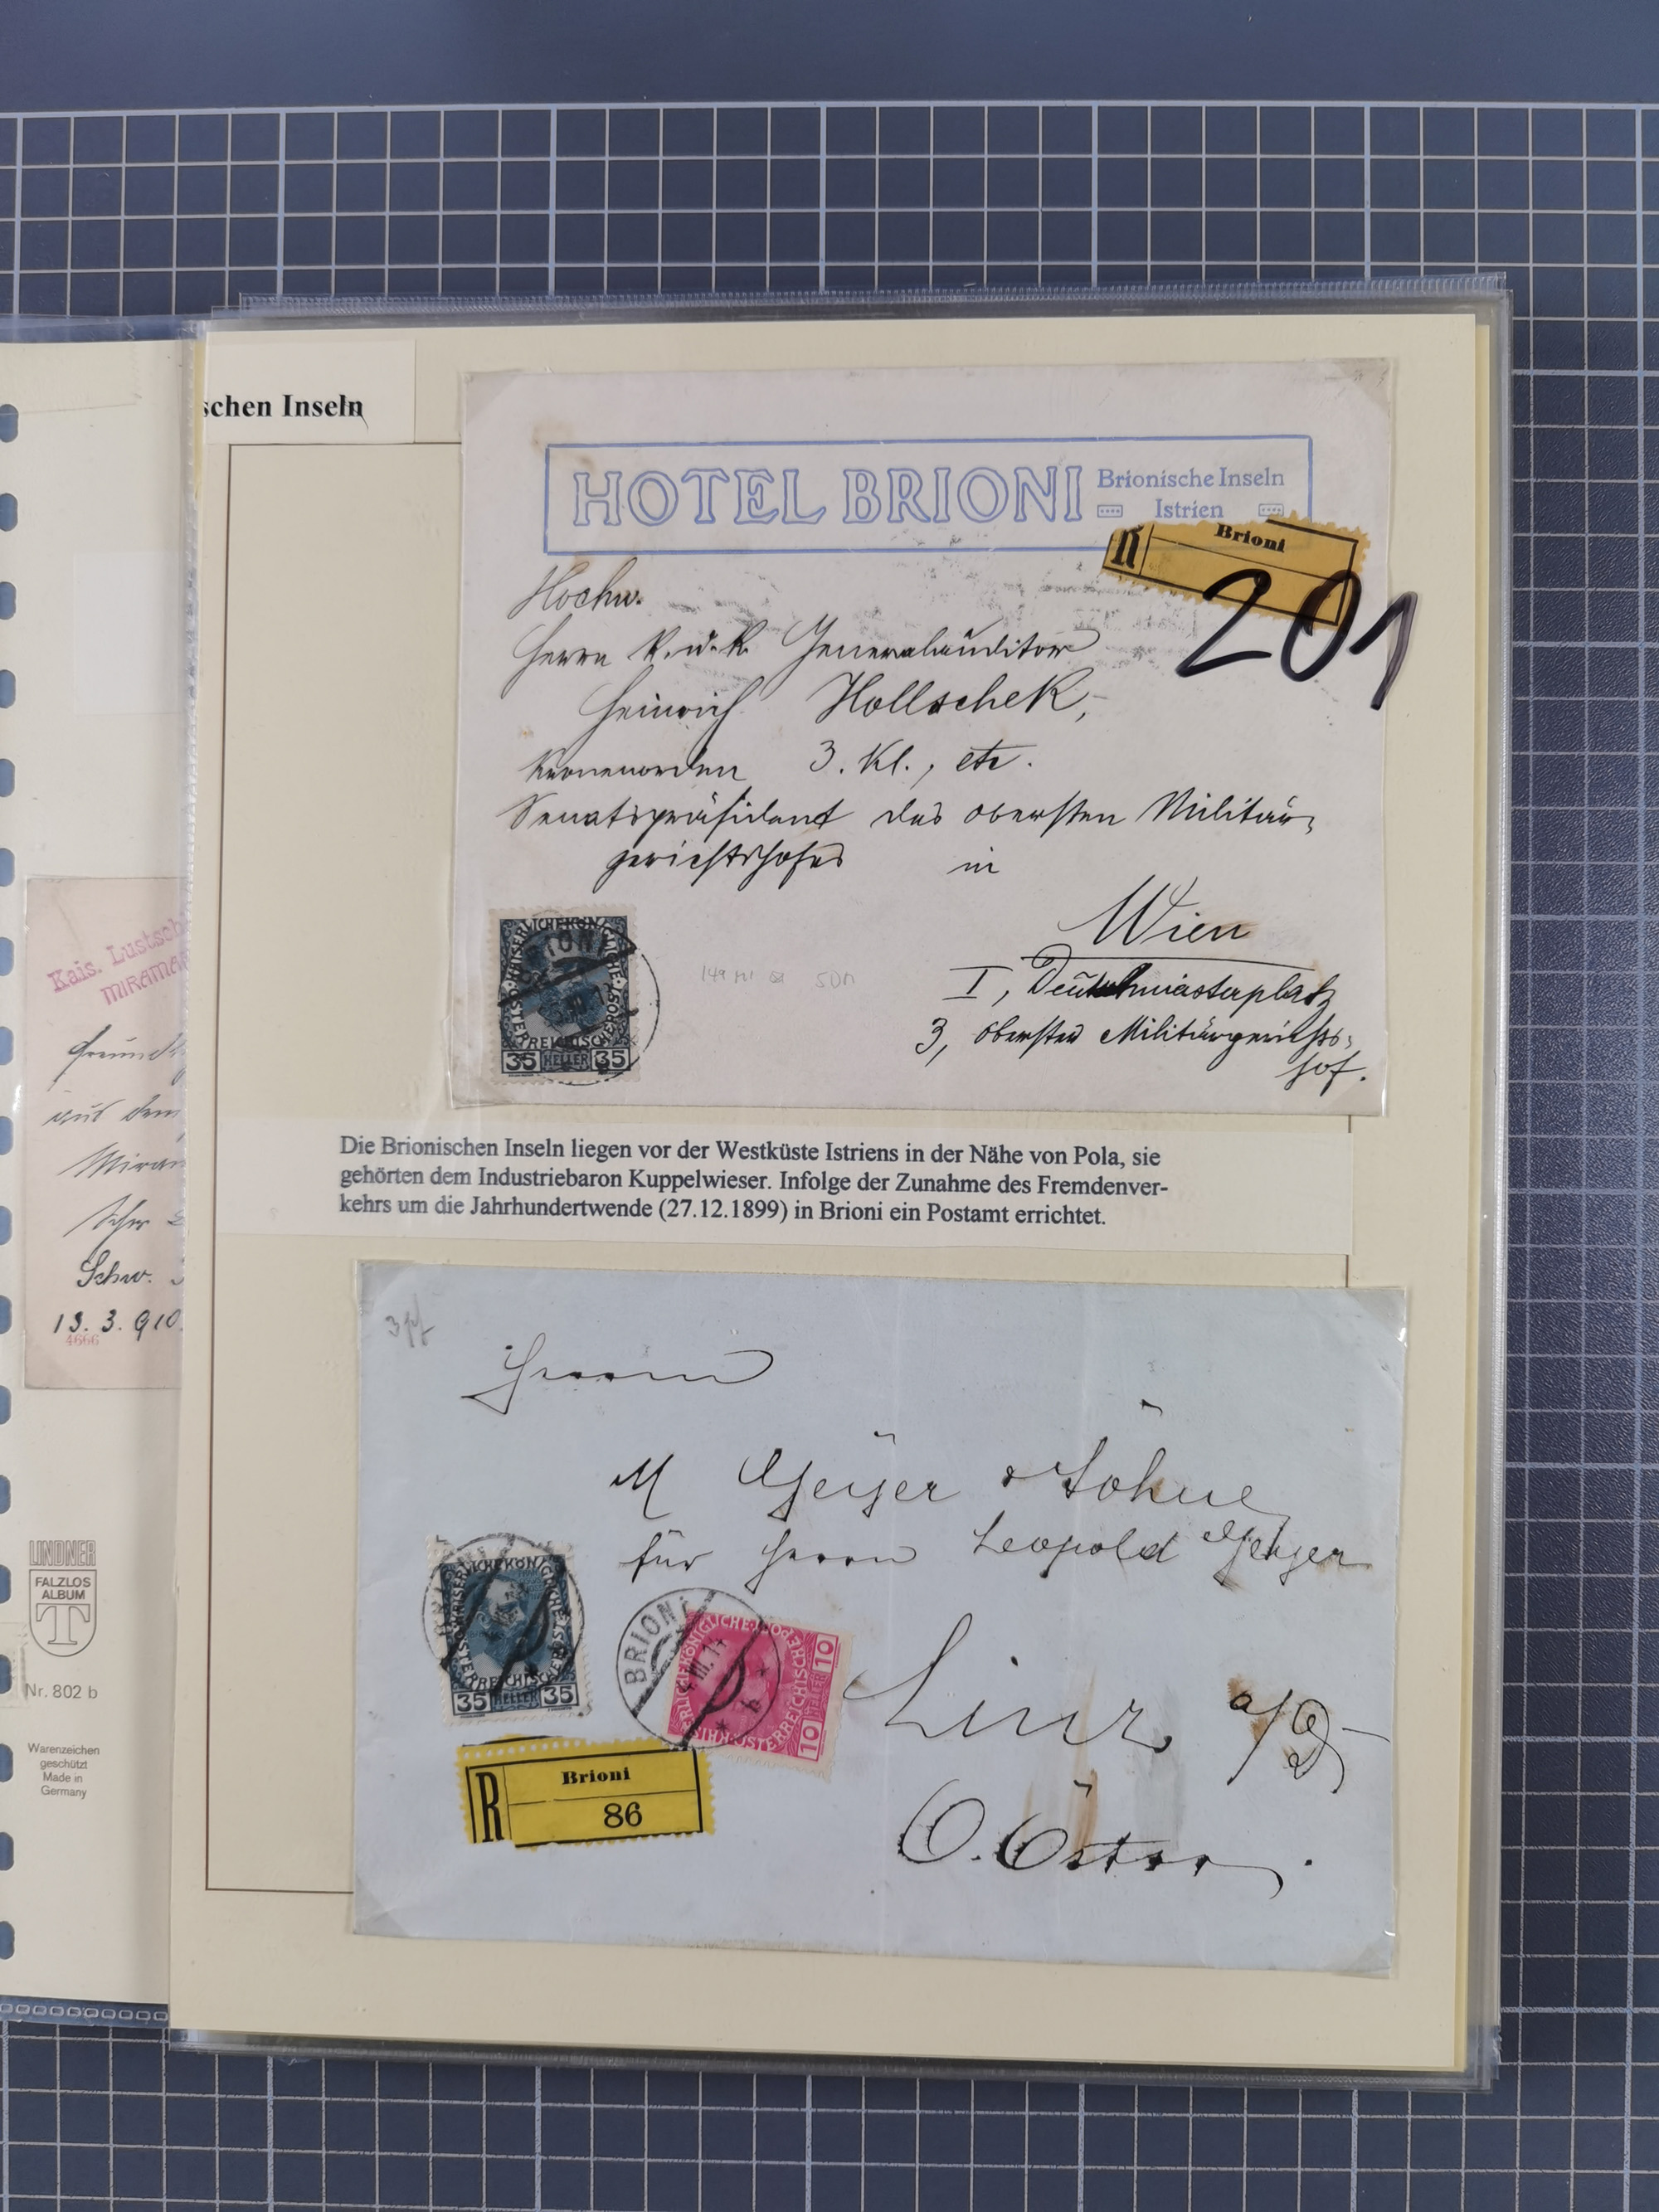 schen Inseln
HOTEL BRIONI
Brionische Inseln
Istrien
R Brioni
201
Hochw.
Herrn K. u. K. Generalauditor
Heinrich Hollschek,
Kronenorden 3. Kl., etc.
Senatspräsident des obersten Militär-
gerichtshofes in
Wien
I, Deutschmeisterplatz
3, oberster Militärgerichts-
hof.
BRIONI
35 HELLER 35
Die Brionischen Inseln liegen vor der Westküste Istriens in der Nähe von Pola, sie
gehörten dem Industriebaron Kuppelwieser. Infolge der Zunahme des Fremdenver-
kehrs um die Jahrhundertwende (27.12.1899) in Brioni ein Postamt errichtet.
Herrn
M Geiger & Söhne
für Herrn Leopold Geiger
Linz a/D
O. Östrr.
35 HELLER 35
BRIONI
10 HELLER 10
R Brioni
86
Kais. Lustsch
MIRAMA
aus dem
Miram
Schw.
13. 3. 910.
4666
LINDNER
FALZLOS
ALBUM
T
Nr. 802 b
Warenzeichen
geschützt
Made in
Germany